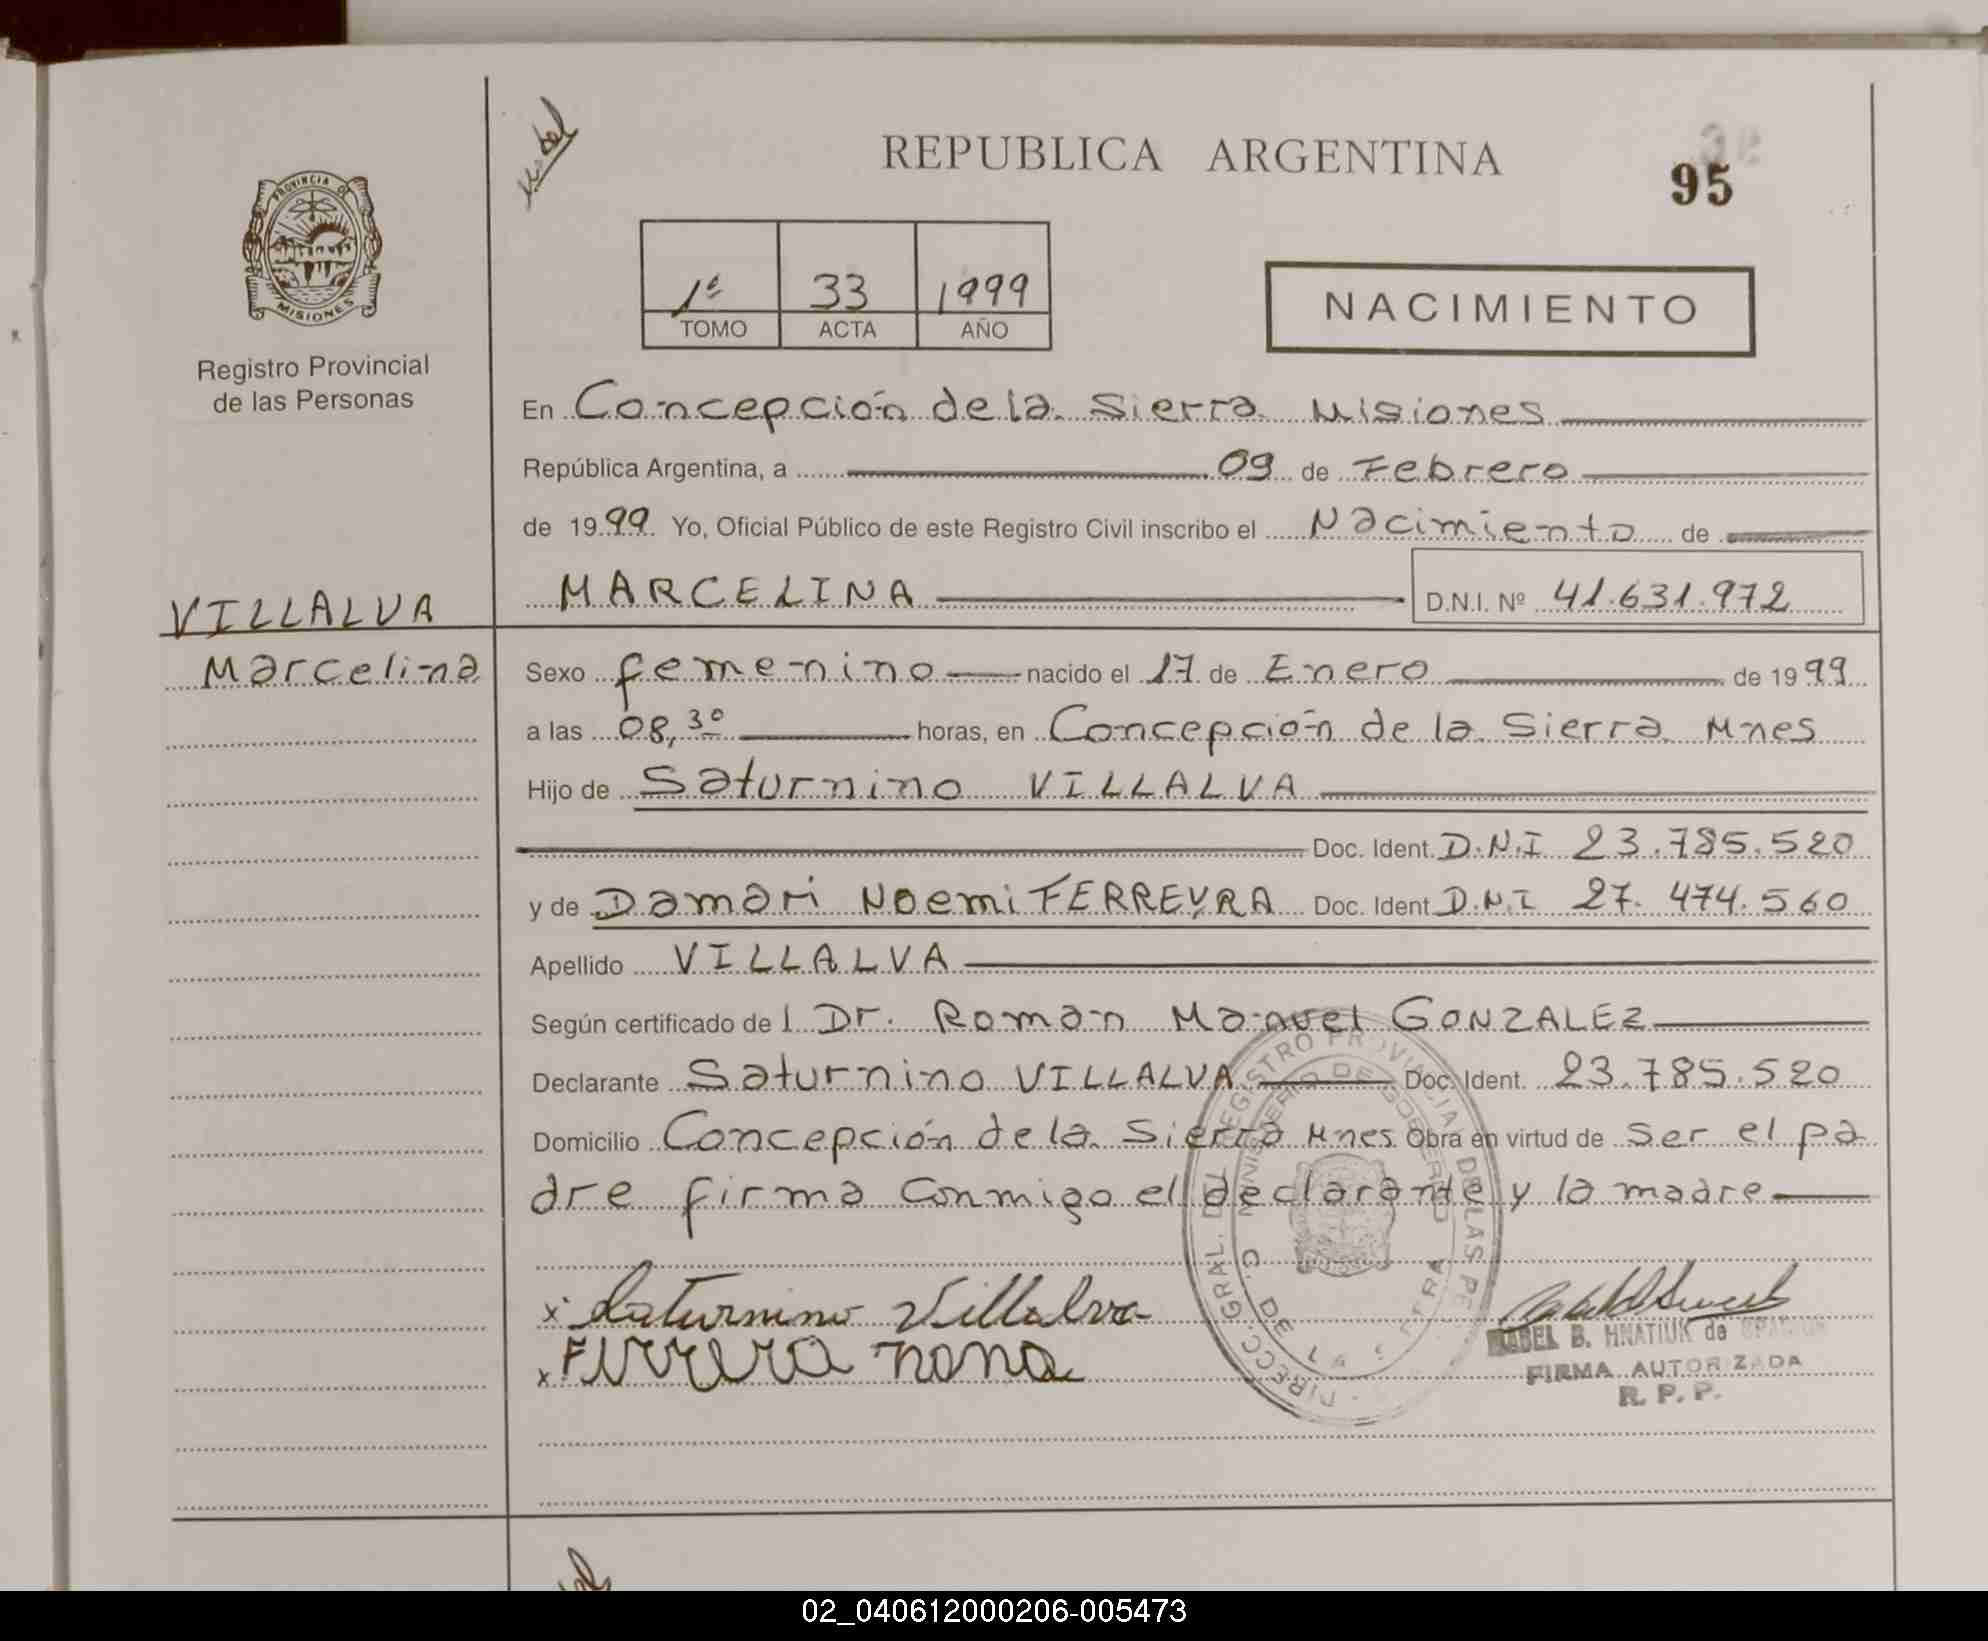 REPUBLICA ARGENTINA
95
PROVINCIA D
MISIONES
Registro Provincial
de las Personas
1º 33 1999
TOMO ACTA AÑO
NACIMIENTO
En Concepción de la Sierra Misiones
República Argentina, a 09 de Febrero
de 1999 Yo, Oficial Público de este Registro Civil inscribo el Nacimiento de
MARCELINA D.N.I. Nº 41.631.972
VILLALVA
Marcelina
Sexo femenino nacido el 17 de Enero de 1999
a las 08,30 horas, en Concepción de la Sierra Mnes
Hijo de Saturnino VILLALVA
Doc. Ident. D.N.I 23.785.520
y de Damari Noemi FERREYRA Doc. Ident D.N.I 27.474.560
Apellido VILLALVA
Según certificado de l Dr. Roman Manuel GONZALEZ
Declarante Saturnino VILLALVA Doc. Ident. 23.785.520
Domicilio Concepción de la Sierra Mnes. Obra en virtud de ser el pa
dre firma conmigo el declarante y la madre
DIRECC. GRAL. DEL REGISTRO PROVINCIAL DE LAS PE
MINISTERIO DE GOBIERNO
C. DE L
x Saturnino Villalva
x
B. HNATIUK de
FIRMA AUTORIZADA
R. P. P.
02_040612000206-005473